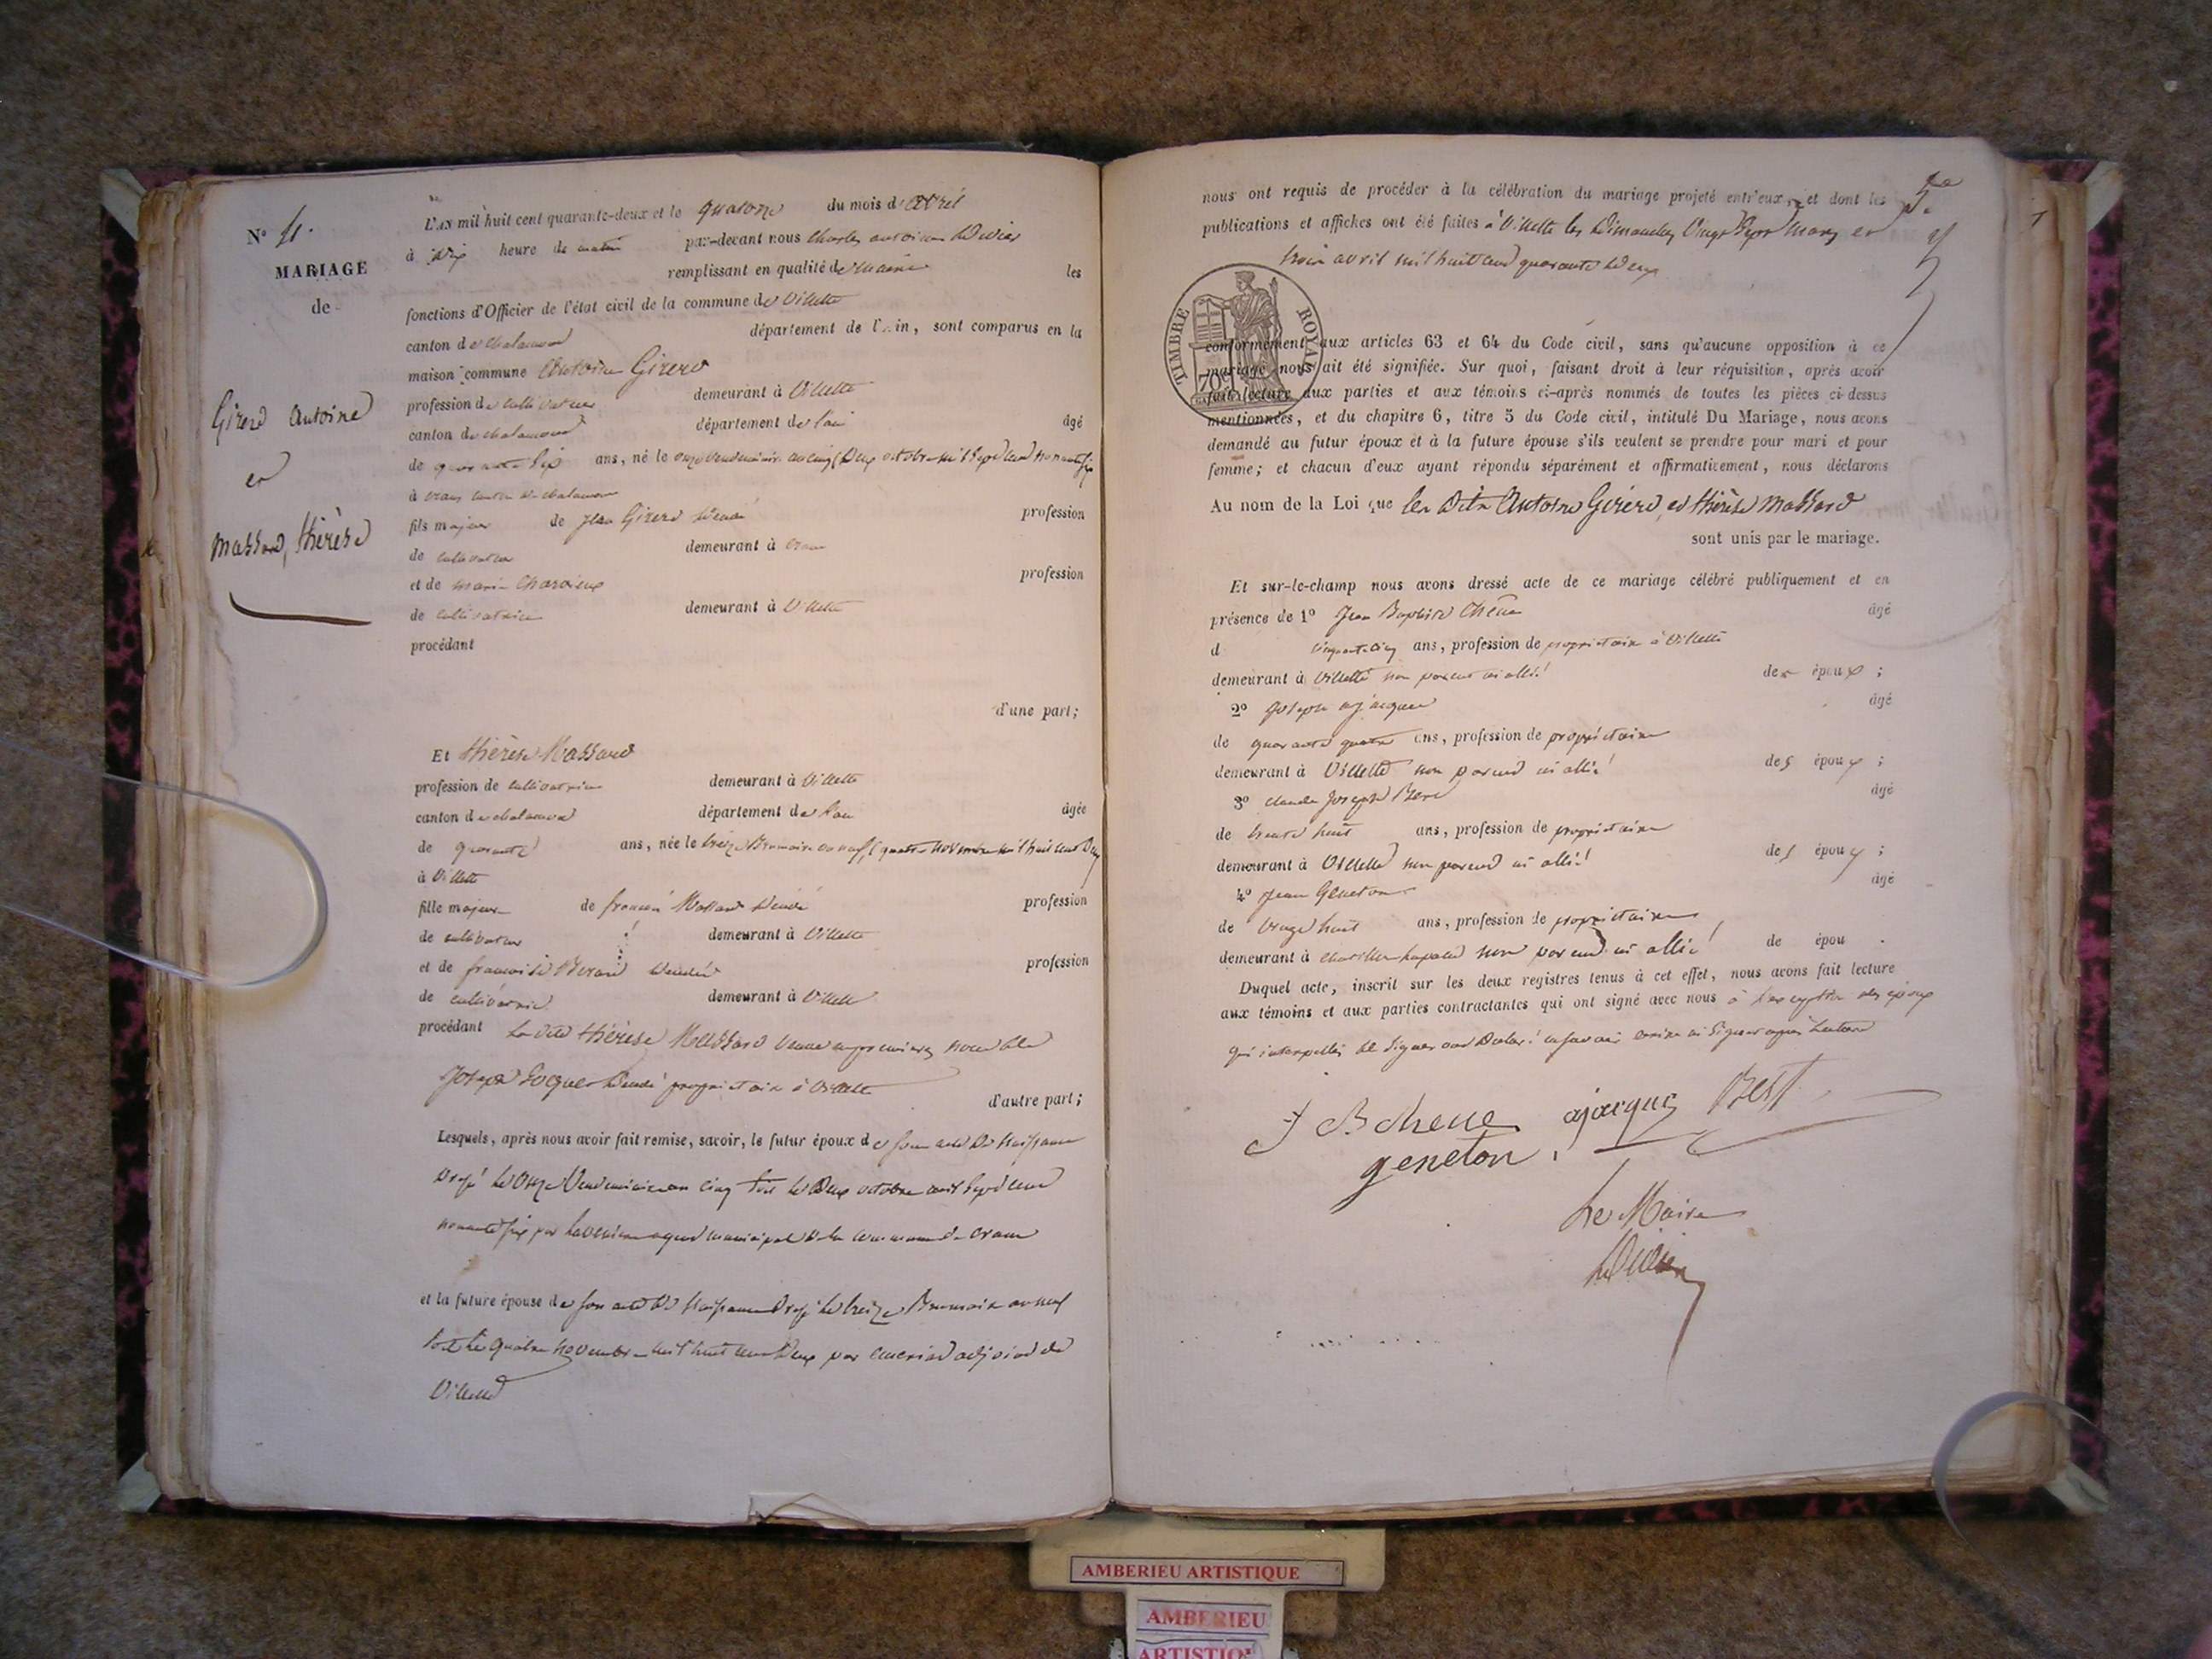 N° 4.
MARIAGE
de
Girerd Antoine
et
Massard, thérèse
L'AN mil huit cent quarante-deux et le quatorze du mois d'Avril
à dix heure du matin par-devant nous Charles antoine
remplissant en qualité de maire les
fonctions d'Officier de l'état civil de la commune de Villette
canton de chalamont département de l'Ain, sont comparus en la
maison commune Antoine Girerd
profession de cultivateur demeurant à Villette
canton de chalamont département de l'ain âgé
de quarante six ans, né le onze vendemiaire an cinq (deux octobre mil sept cent nonante six
à crans canton de chalamont
fils majeur de Jean Girerd profession
de cultivateur demeurant à crans
et de marie profession
de cultivatrice demeurant à Villette
procédant
d'une part;
Et thérèse Massard
profession de cultivatrice demeurant à Villette
canton de chalamont département de l'ain âgée
de quarante ans, née le treize Brumaire an neuf, (quatre novembre mil huit cent deux
à Villette
fille majeure de françois Massard profession
de cultivateur demeurant à Villette
et de françoise profession
de cultivatrice demeurant à Villette
procédant La dite thérèse Massard veuve en premières noces de
Joseph propriétaire à Villette
d'autre part;
Lesquels, après nous avoir fait remise, savoir, le futur époux de son acte de naissance
le onze Vendemiaire an cinq soit le deux octobre mil sept cent
nonante six par agent municipal de la commune de crans
et la future épouse de son acte de naissance le treize Brumaire an neuf
soit le quatre novembre mil huit cent deux par adjoint de
Villette
nous ont requis de procéder à la célébration du mariage projeté entr'eux, et dont les
publications et affiches ont été faites à Villette les dimanches vingt sept mars et
trois avril mil huit cent quarante deux
TIMBRE ROYAL
70
conformément aux articles 63 et 64 du Code civil, sans qu'aucune opposition à ce
mariage nous ait été signifiée. Sur quoi, faisant droit à leur réquisition, après avoir
fait lecture aux parties et aux témoins ci-après nommés de toutes les pièces ci-dessus
mentionnées, et du chapitre 6, titre 5 du Code civil, intitulé Du Mariage, nous avons
demandé au futur époux et à la future épouse s'ils veulent se prendre pour mari et pour
femme; et chacun d'eux ayant répondu séparément et affirmativement, nous déclarons
Au nom de la Loi que les dits Antoine Girerd et thérèse Massard
sont unis par le mariage.
Et sur-le-champ nous avons dressé acte de ce mariage célébré publiquement et en
présence de 1° Jean Baptiste Chêne âgé
d cinquante cinq ans, profession de propriétaire à Villette
demeurant à Villette non parent ni allié des époux ;
2° Joseph ajacques âgé
de quarante quatre ans, profession de propriétaire
demeurant à Villette non parent ni allié des époux ;
3° claude Joseph âgé
de trente huit ans, profession de propriétaire
demeurant à Villette non parent ni allié des époux ;
4° Jean Geneton âgé
de vingt huit ans, profession de propriétaire
demeurant à chatillon non parent ni allié de épou .
Duquel acte, inscrit sur les deux registres tenus à cet effet, nous avons fait lecture
aux témoins et aux parties contractantes qui ont signé avec nous à l'exception des époux
qui interpellés de signer ont déclaré ne savoir écrire ni signer après lecture
J B chene ajacques
geneton
Le Maire
AMBERIEU ARTISTIQUE
AMBERIEU
ARTISTIQ